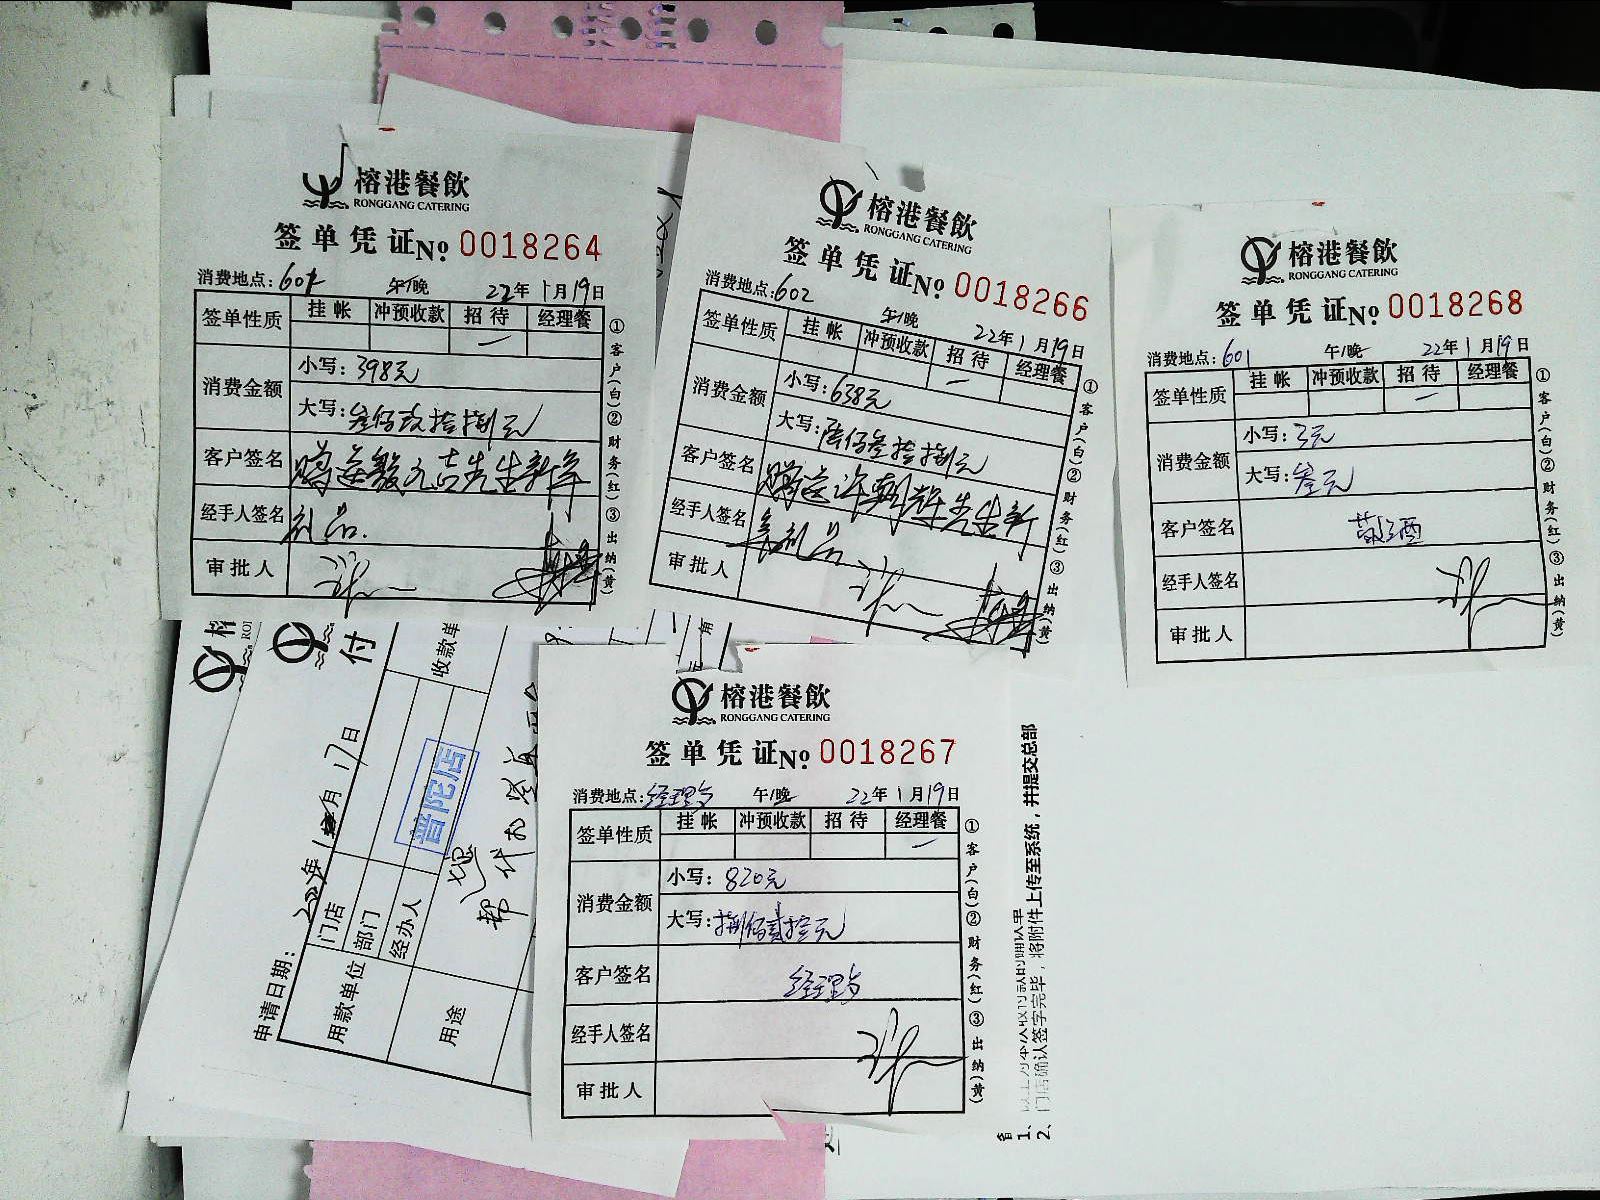 榕港餐飲
RONGGANG CATERING
签单凭证No 0018264
消费地点: 午/晚 22年1月19日
签单性质 挂帐 冲预收款 招待 经理餐
消费金额 小写:398元
大写:叁佰玖拾捌元
客户签名
经手人签名 礼品.
审批人
①客户(白)②财务(红)③出纳(黄)
榕港餐飲
RONGGANG CATERING
签单凭证No 0018266
消费地点:602 午/晚 22年1月19日
签单性质 挂帐 冲预收款 招待 经理餐
消费金额 小写:638元
大写:陆佰叁拾捌元
客户签名
经手人签名 礼品
审批人
①客户(白)②财务(红)③出纳(黄)
榕港餐飲
RONGGANG CATERING
签单凭证No 0018268
消费地点:601 午/晚 22年1月19日
签单性质 挂帐 冲预收款 招待 经理餐
消费金额 小写:3元
大写:叁元
客户签名
经手人签名
审批人
①客户(白)②财务(红)③出纳(黄)
榕港餐飲
RONGGANG CATERING
签单凭证No 0018267
消费地点:经理 午/晚 22年1月19日
签单性质 挂帐 冲预收款 招待 经理餐
消费金额 小写:820元
大写:捌佰贰拾元
客户签名 经理
经手人签名
审批人
①客户(白)②财务(红)③出纳(黄)
付
申请日期: 月17日
用款单位 门店 普陀店
部门
经办人
收款单
用途
2、门店确认签字完毕,将附件上传至系统,并提交总部